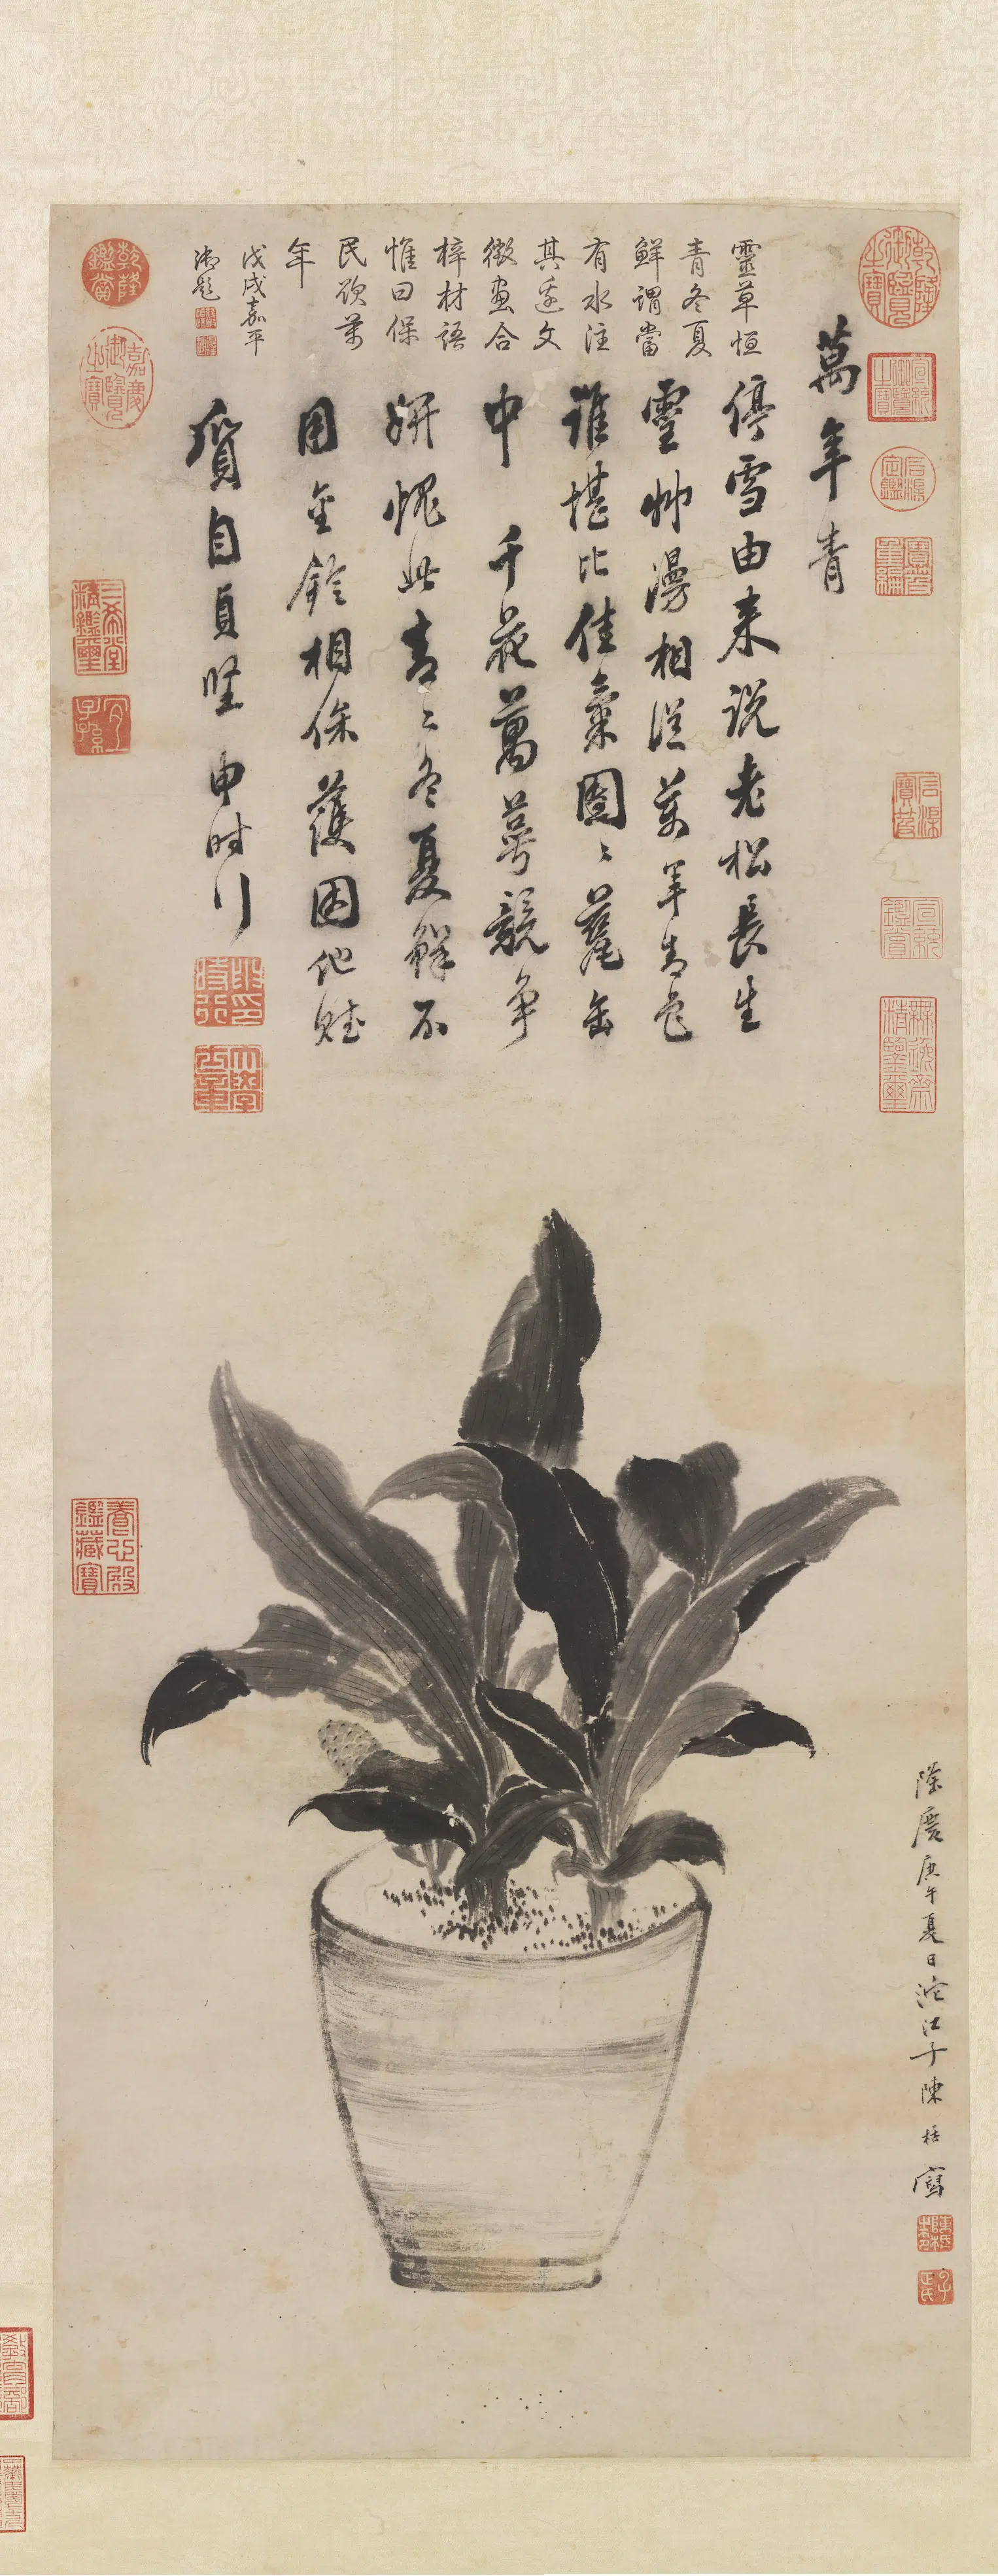 萬年青
停雲由来説老松長生
靈艸漫相從萬年青色
誰堪比佳氣圖〻甕缶
中千花萬萼競爭
妍愧此青〻冬夏鮮不
用金鈴相保護因他
質自貞堅申时行
靈草恒
青冬夏
鮮謂當
有水注
其邊文
徵畫合
梓材語
惟曰保
民欣萬
年
戊戌嘉平
御題
隆慶庚午夏日沱江子陳栝寫
乾隆御覽之寶
宣統御覽之寶
石渠定鑑
寶笈重編
石渠寶笈
宣統鑑賞
無逸齋精鑒璽
乾隆鑑賞
嘉慶御覽之寶
三希堂精鑑璽
宜子孫
養心殿鑑藏寶
大學士章